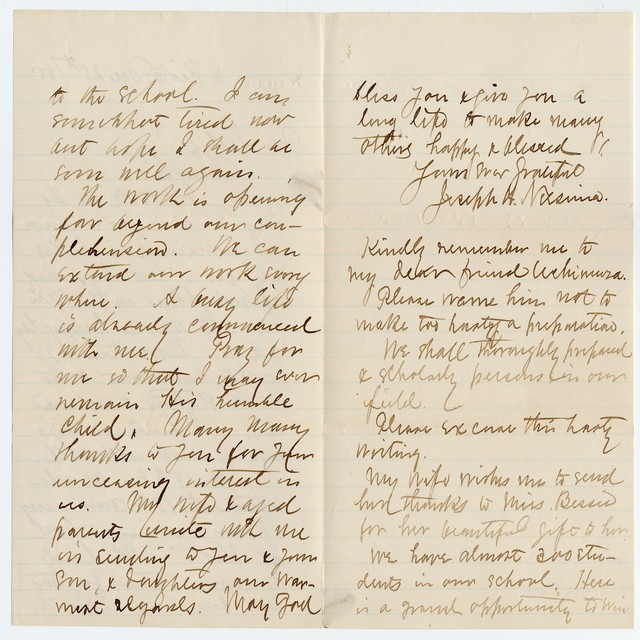 to the school. I am
somewhat tired now
but hope I shall be
soon well again.
The work is opening
far beyond our com-
prehension. We can
extend our work every
where. A busy life
is already commenced
with me! Pray for
me so that I may ever
remain His humble
child. Many many
thanks to you for your
unceasing interest in
us. My wife & aged
parents unite with me
in sending to you & your
son, & daughters our war-
mest regards. May God
bless you & give you a
long life to make many
others happy & blessed
Yours ever grateful
Joseph H. Neesima.
Kindly remember me to
my dear friend Uchimura.
Please warn him not to
make too hasty a preparation.
We shall thoroughly prepared
& scholarly persons in our
field.
Please excuse this hasty
writing.
My wife wishes me to send
her thanks to Miss. Bessie
for her beautiful gift to her.
We have almost 200 stu-
dents in our school. Here
is a grand opportunity to win